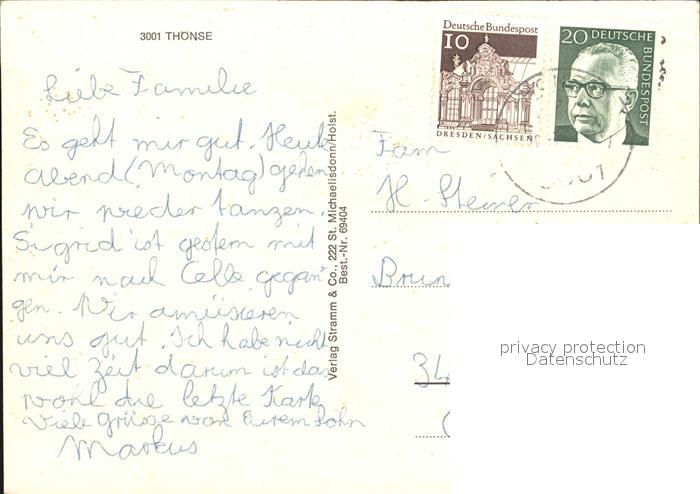 3001 THÖNSE
Liebe Familie
Es geht mir gut. Heute
abend (Montag) gehen
wir wieder tanzen.
Sigrid ist gestern mit
mir nach Celle gegan
gen. Wir amüsieren
uns gut. Ich habe nicht
viel Zeit darum ist das
wohl die letzte Karte
Viele Grüsse von Eurem Sohn
Markus
Verlag Stramm & Co., 222 St. Michaelisdonn/Holst.
Best.-Nr. 69404
Deutsche Bundespost
10
DRESDEN/SACHSEN
20 DEUTSCHE BUNDESPOST
Fam
H. Steiner
privacy protection
Datenschutz